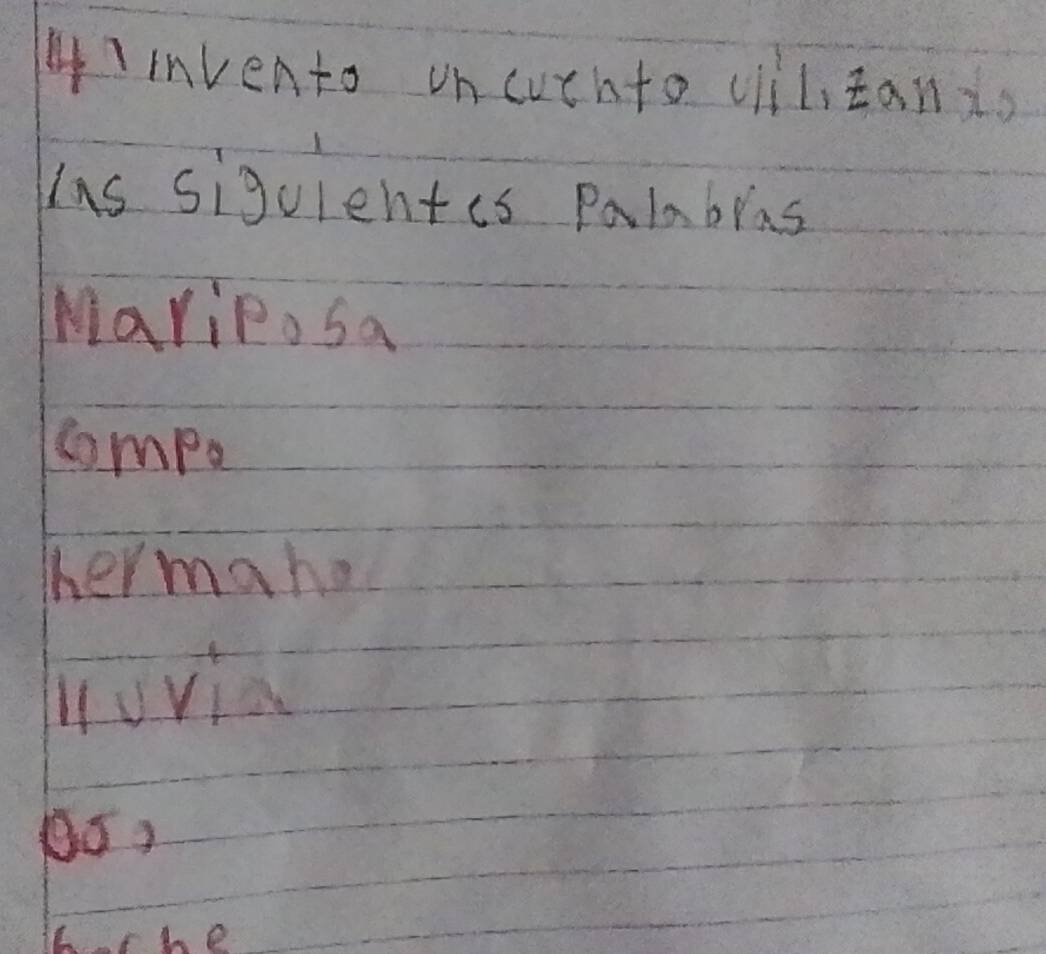 4) invento un cuento utilizando
las siguientes Palabras
Mariposa
Campo
hermano
lluvia
Oso
noche